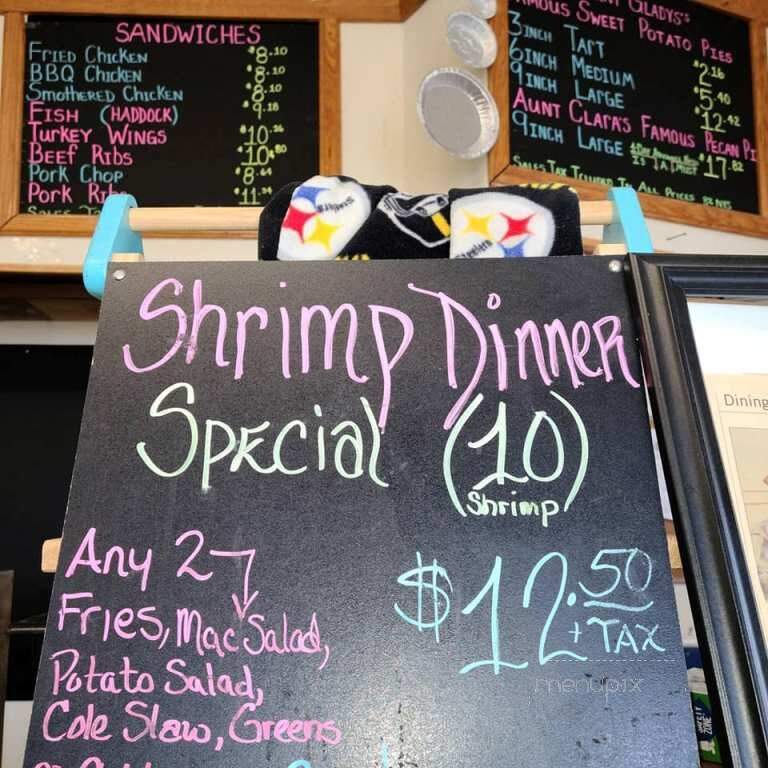 SANDWICHES
FRIED CHICKEN $8.10
BBQ CHICKEN $8.10
SMOTHERED CHICKEN $8.10
FISH (HADDOCK) $9.18
TURKEY WINGS $10.26
BEEF RIBS $10.80
PORK CHOP $8.64
PORK RIBS $11.34
GLADYS'S
FAMOUS SWEET POTATO PIES
3INCH TART $2.16
6INCH MEDIUM $5.40
9INCH LARGE $12.42
AUNT CLARA'S FAMOUS PECAN PI
9INCH LARGE $17.82
IS A MUST
SALES TAX INCLUDED IN ALL PRICES
Steelers
Steelers
Shrimp Dinner
Special (10)
Shrimp
Any 2
Fries, Mac Salad,
Potato Salad,
Cole Slaw, Greens
$12.50
+ TAX
Dining
menupix